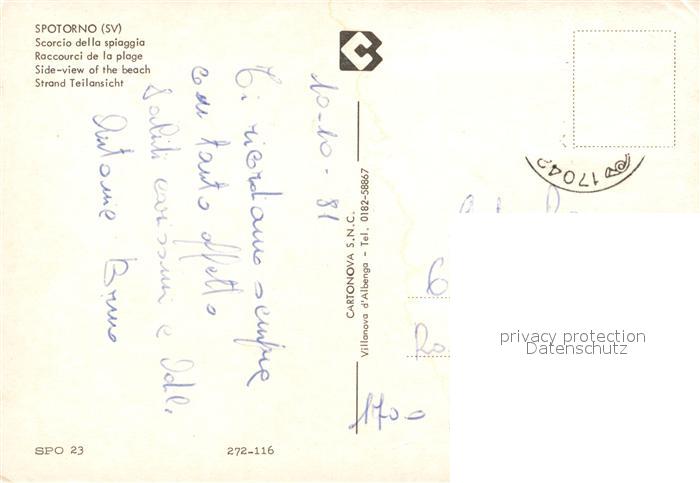 SPOTORNO (SV)
Scorcio della spiaggia
Raccourci de la plage
Side-view of the beach
Strand Teilansicht
10-10-81
Ti ricordiamo sempre
con tanto affetto
Saluti carissimi e
Antonie Bruno
CARTONOVA S.N.C.
Villanova d'Albenga - Tel. 0182-58867
17042
Ro
1700
privacy protection
Datenschutz
SPO 23
272-116